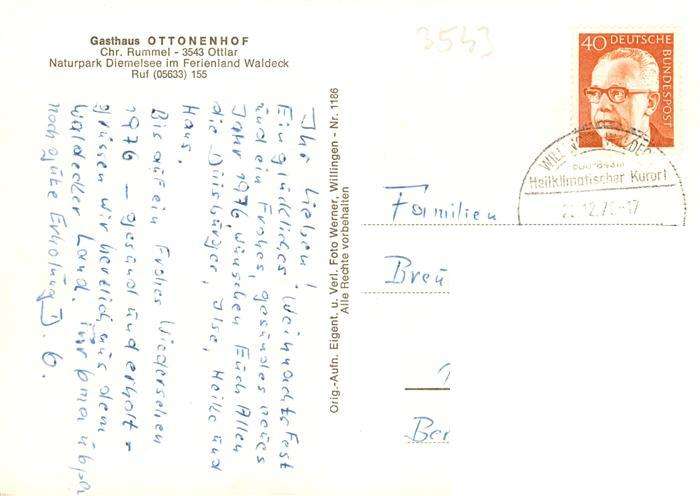 Gasthaus OTTONENHOF
Chr. Rummel - 3543 Ottlar
Naturpark Diemelsee im Ferienland Waldeck
Ruf (05633) 155
3543
40 DEUTSCHE
BUNDESPOST
Heilklimatischer Kurort
Ihr Lieben!
Ein glückliches Weihnachtsfest
und ein Frohes, gesundes neues
Jahr 1976, wünschen Euch Allen
die Duisburger, Ilse, Heike und
Haus.
Bis auf ein Frohes Wiedersehen
1976 – gesund und erholt –
grüssen wir herzlich aus dem
Waldecker Land.
noch gute Erholung
Orig.-Aufn. Eigent. u. Verl. Foto Werner, Willingen - Nr. 1186
Alle Rechte vorbehalten
Familien
Breu
Ber